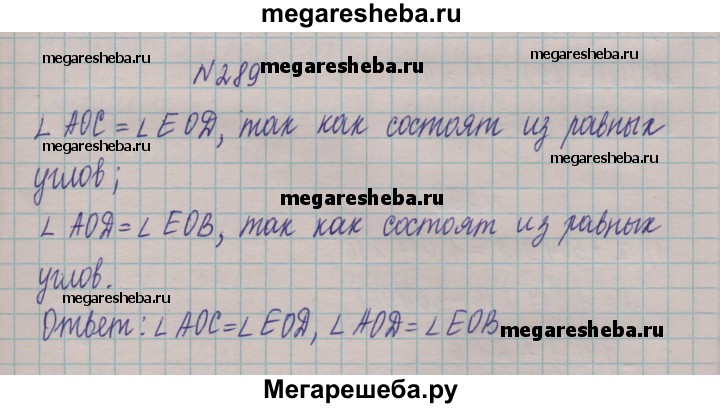 megaresheba.ru
megaresheba.ru
megaresheba.ru
№289 megaresheba.ru
∠ AOC = ∠ EOD, так как состоят из равных
megaresheba.ru
megaresheba.ru
углов;
megaresheba.ru
∠ AOD = ∠ EOB, так как состоят из равных
углов.
megaresheba.ru
Ответ: ∠ AOC = ∠ EOD, ∠ AOD = ∠ EOB megaresheba.ru
Мегарешеба.ру